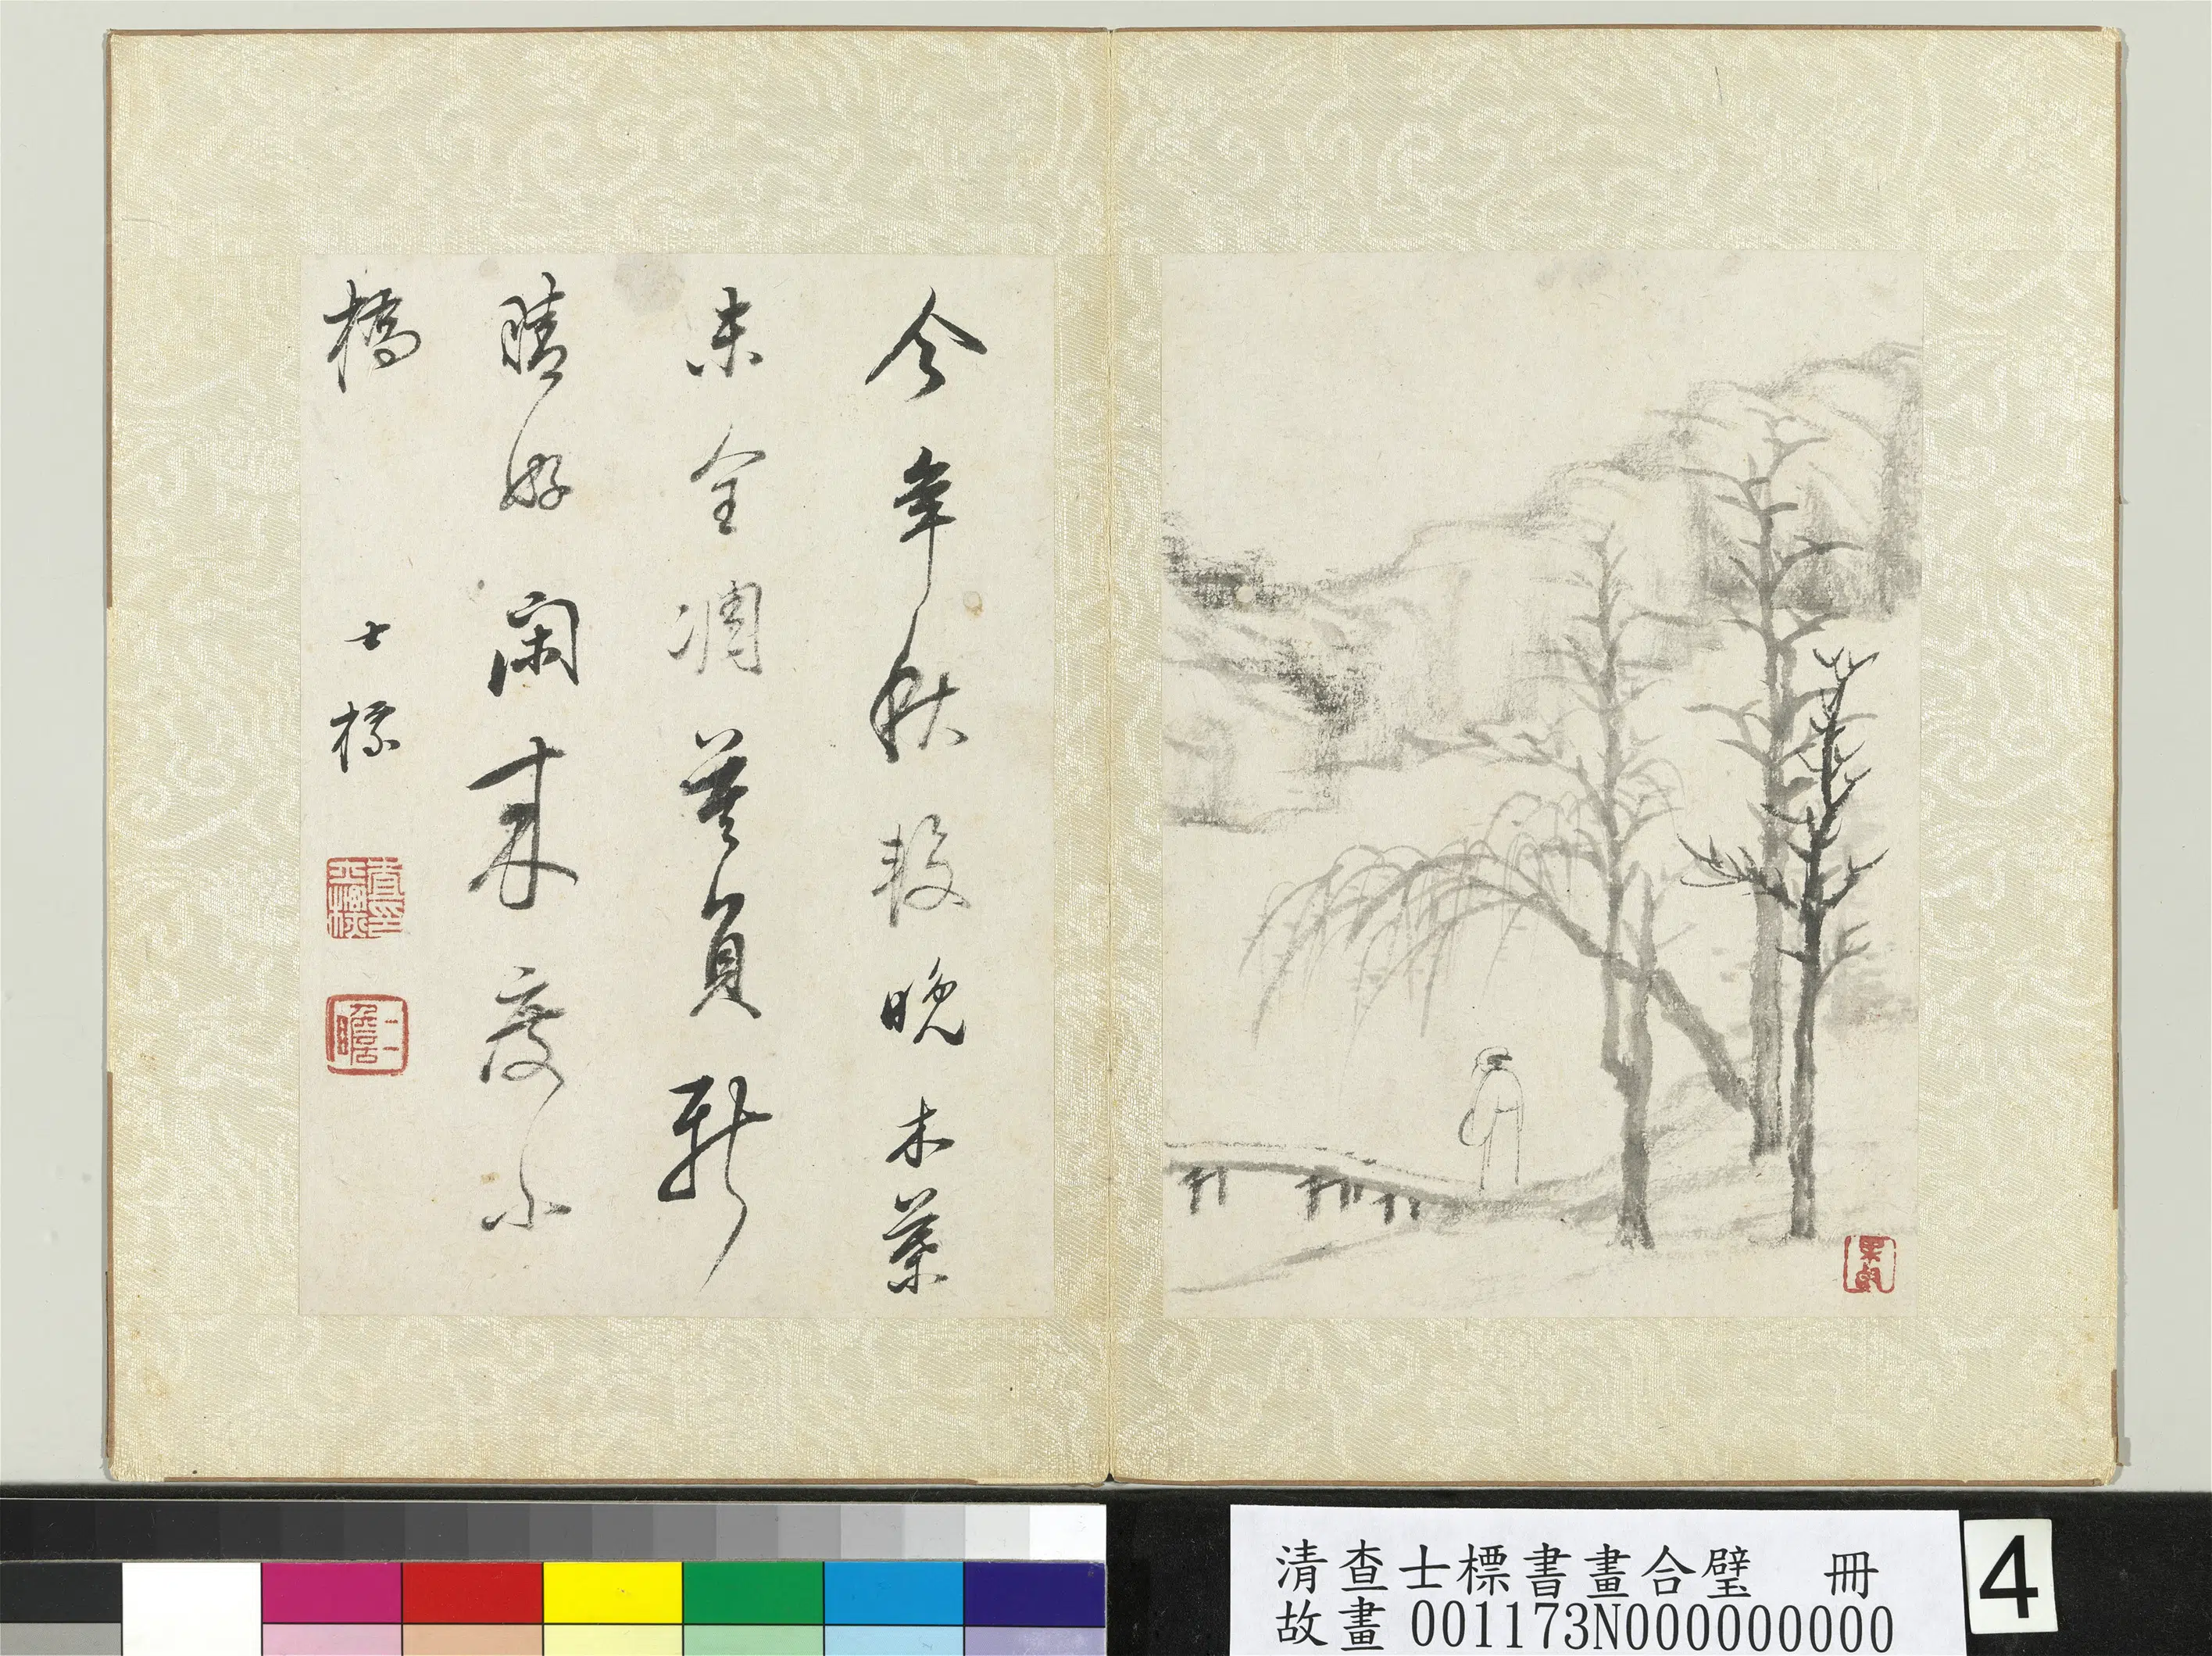 今年秋較晚木葉
未全凋莫負新
晴好閒來度小
橋
士標
查士標印
二瞻
清查士標書畫合璧 冊
故畫 001173N000000000
4